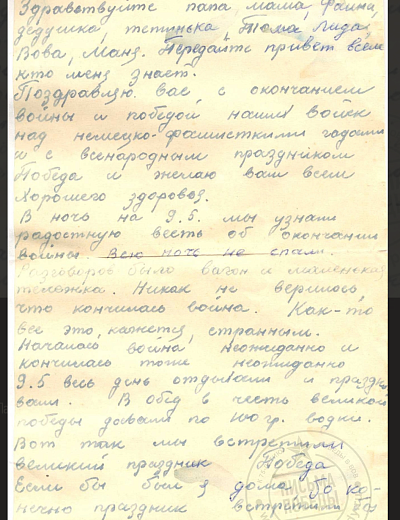 Здравствуйте папа, мама, Фаина,
дедушка, тетинька, Тома Лида,
Вова, Маня. Передайте привет всем
кто меня знает.
Поздравляю вас с окончанием
войны и победой наших войск
над немецко-фашисткими гадами
и с всенародным праздником
Победа и желаю вам всем
хорошего здоровья.
В ночь на 9.5. мы узнали
радостную весть об окончании
войны. Всю ночь не спали.
Разговоров было вагон и маленькая
тележка. Никак не верилось,
что кончилась война. Как-то
все это, кажется, странным.
Началась война неожиданно и
кончилась тоже неожиданно
9.5 весь день отдыхали и праздно
вали. В обед в честь великой
победы давали по 100 гр. водки.
Вот так мы встретили
великий праздник Победа
Если бы был я дома то ко-
нечно праздник встретили
ПИСЬМА